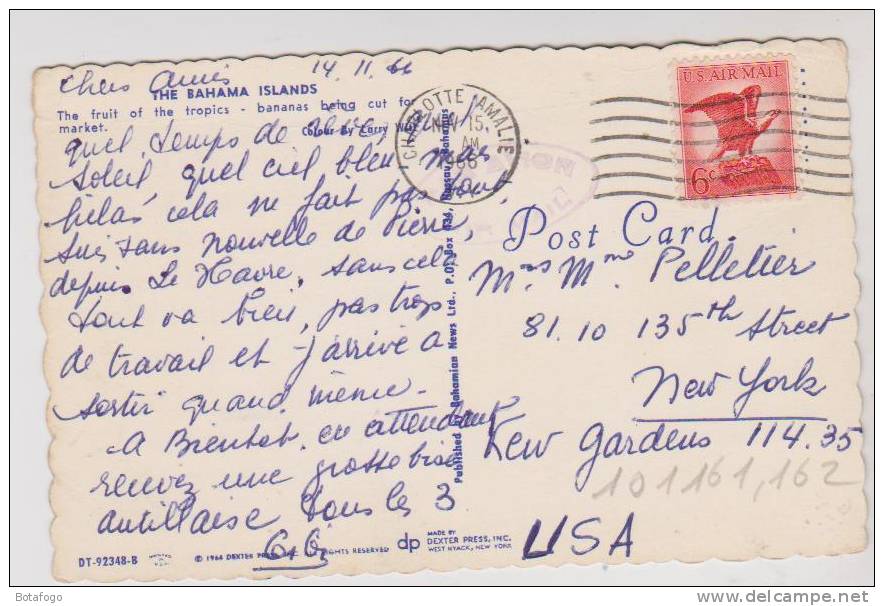 Chers Amis 14.11.66
THE BAHAMA ISLANDS
The fruit of the tropics - bananas being cut for
market.
Colour By Larry
quel temps de rêve,
soleil, quel ciel bleu mais
helas cela ne fait pas tout
suis sans nouvelle de Pierre,
depuis Le Havre, sans cela
tout va bien, pas trop
de travail et j'arrive a
sortir quand même.
A Bientot, en attendant
recevez une grosse bise
antillaise tous les 3
DT-92348-B
© 1964 DEXTER RIGHTS RESERVED
dp
MADE BY
DEXTER PRESS, INC.
WEST NYACK, NEW YORK
Published Bahamian News Ltd., P.O. Box Nassau, Bahamas
CHARLOTTE AMALIE
NOV 15
AM
1966
U.S. AIR MAIL
6c
Post Card
Mrs Mme Pelletier
81.10 135th Street
New York
Kew Gardens 114.35
101161,162
USA
Botafogo
www.delcampe.net